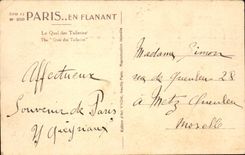 PARIS...EN FLANANT
Le Quai des Tuileries
The "Quai des Tuileries"
Affectueux
Souvenir de Paris
Madame Simon
rue de Queuleu 28
à Metz Queuleu
Moselle